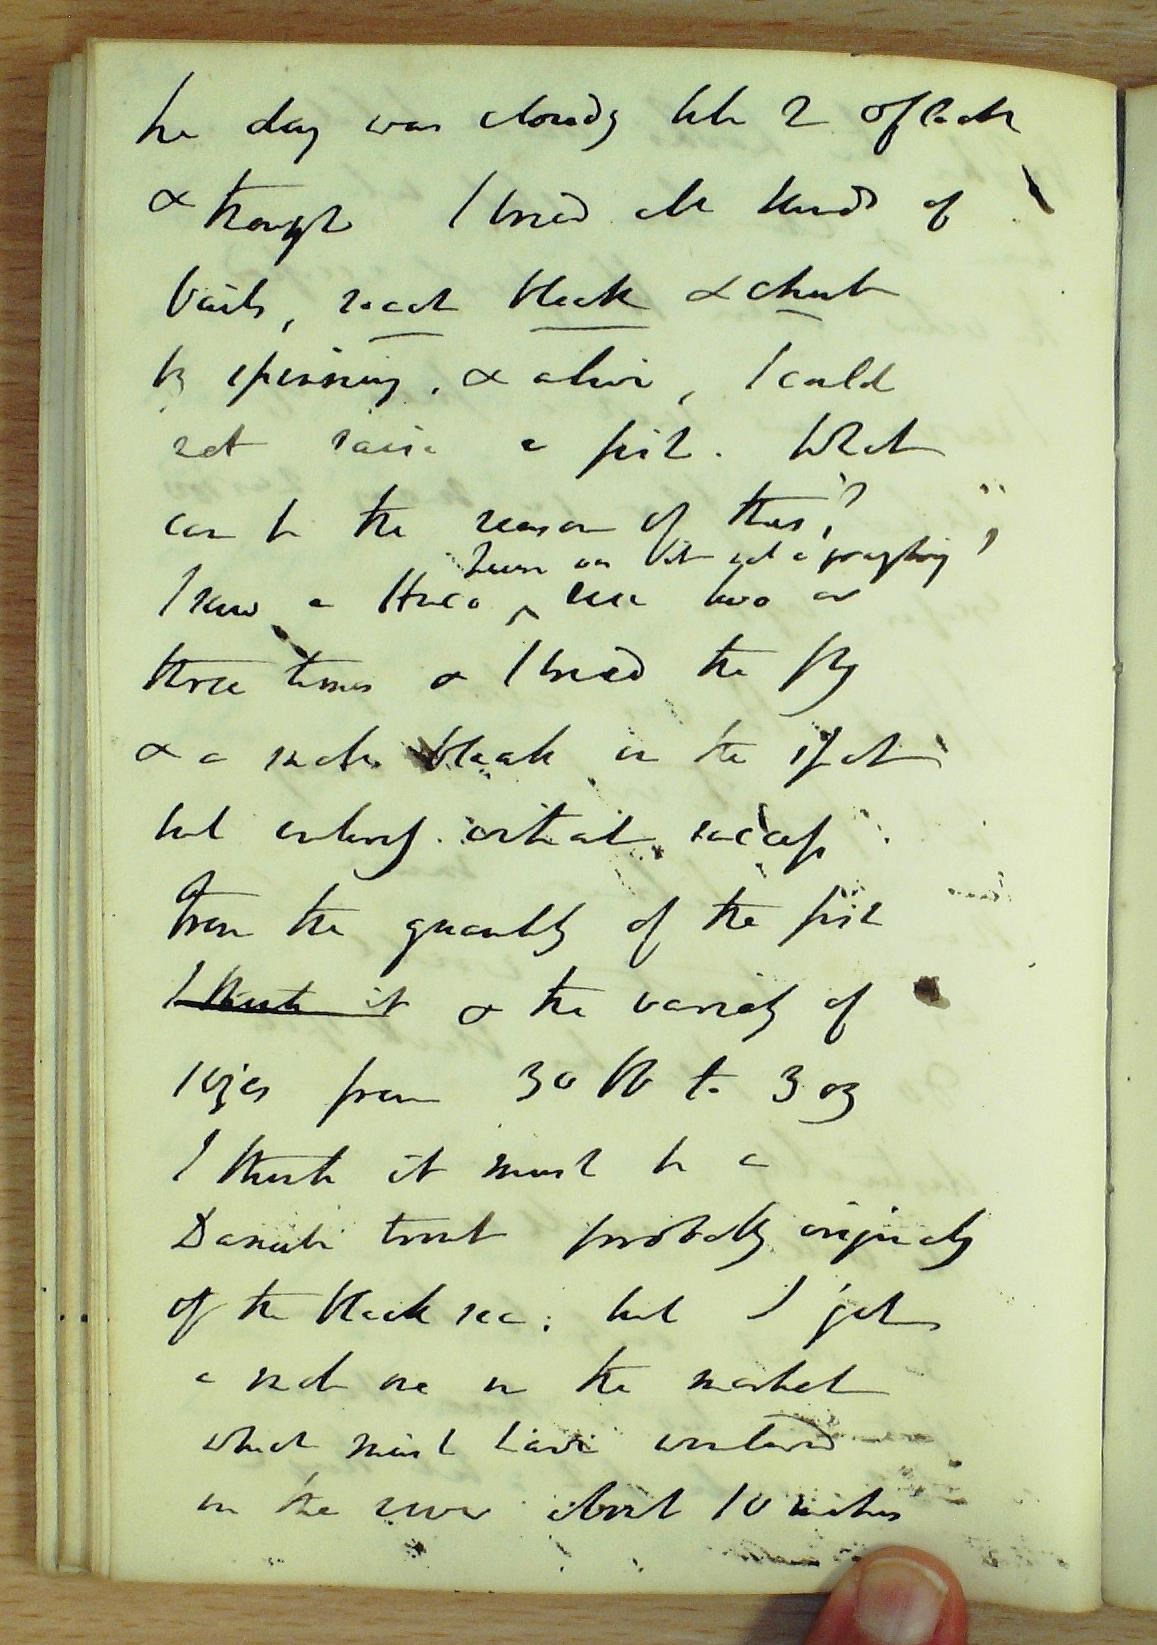 he day was cloudy till 2 oClock
& though I tried all kinds of
baits, roach bleak & chub
by spinning, & alive, I could
not raise a fish. What
can be the reason of this?
I saw a Huco rise two or
three times & I tried the fly
& a bleak in the spot
but entirely without success
From the quantity of the fish
I think it & the variety of
sizes from 30 lb to 3 oz
I think it must be a
Danube trout probably originaly
of the black sea; but I got
a one in the market
which must have wintered
in the river about 10 inches